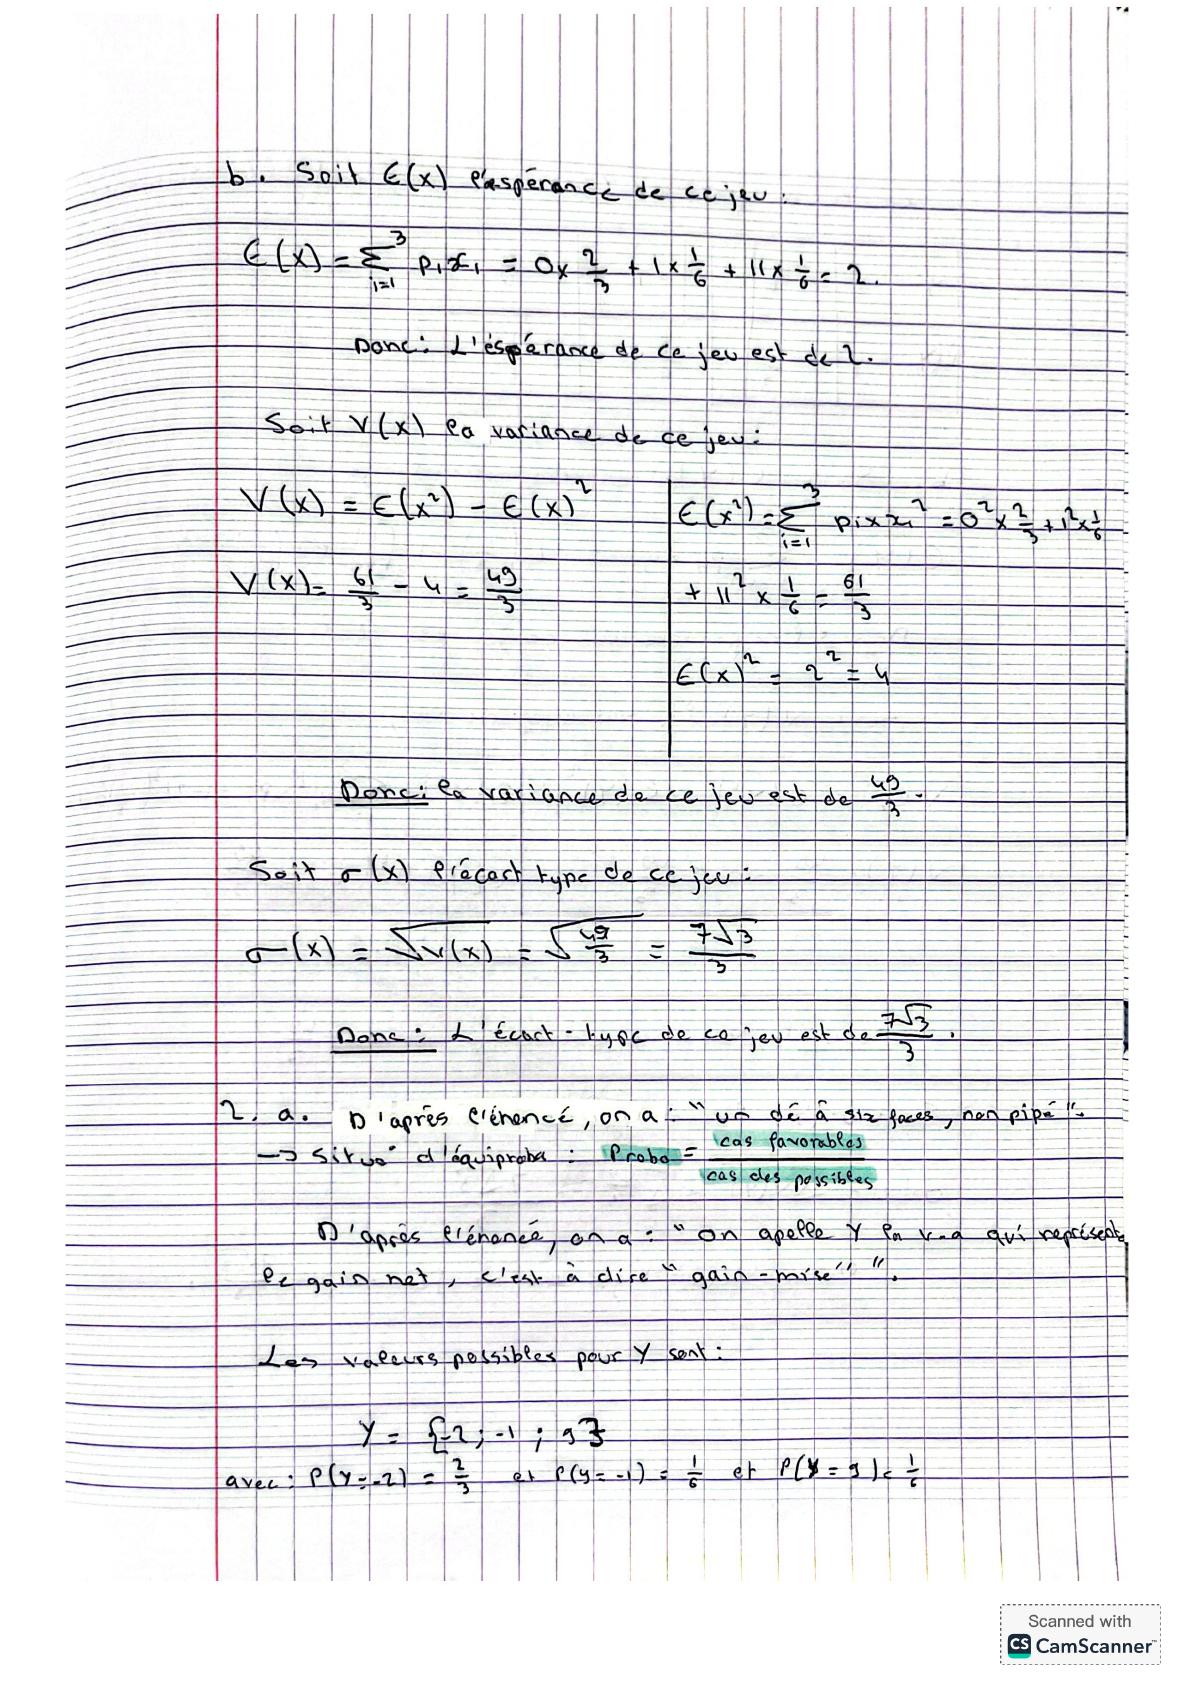 b. Soit E(x) l'espérance de ce jeu :
E(x) = Σ_{i=1}^{3} pi xi = 0 x 2/3 + 1 x 1/6 + 11 x 1/6 = 2.
Donc : L'éspérance de ce jeu est de 2.
Soit V(x) la variance de ce jeu :
V(x) = E(x²) - E(x)²
V(x) = 61/3 - 4 = 49/3
E(x²) = Σ_{i=1}^{3} pi x xi² = 0² x 2/3 + 1² x 1/6
+ 11² x 1/6 = 61/3
E(x)² = 2² = 4
Donc : la variance de ce jeu est de 49/3.
Soit σ(x) l'écart type de ce jeu :
σ(x) = √V(x) = √49/3 = 7√3/3
Donc : L'écart-type de ce jeu est de 7√3/3.
2. a. D'après l'énoncé, on a : "un dé à six faces, non pipé".
→ situa° d'équiproba : Proba = cas favorables / cas des possibles
D'après l'énoncé, on a : "on apelle Y la v.a qui représente
le gain net, c'est à dire "gain-mise" ".
Les valeurs possibles pour Y sont :
Y = {-2 ; -1 ; 9}
avec : P(Y=-2) = 2/3 et P(Y=-1) = 1/6 et P(Y=9) = 1/6
Scanned with
CS CamScanner